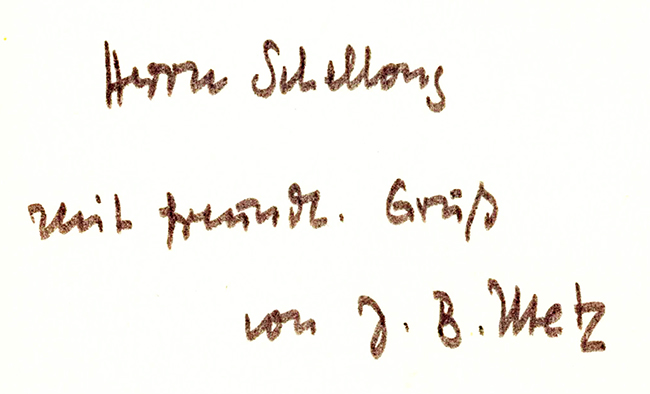 Herrn Schellong
mit freundl. Gruß
von J. B. Metz